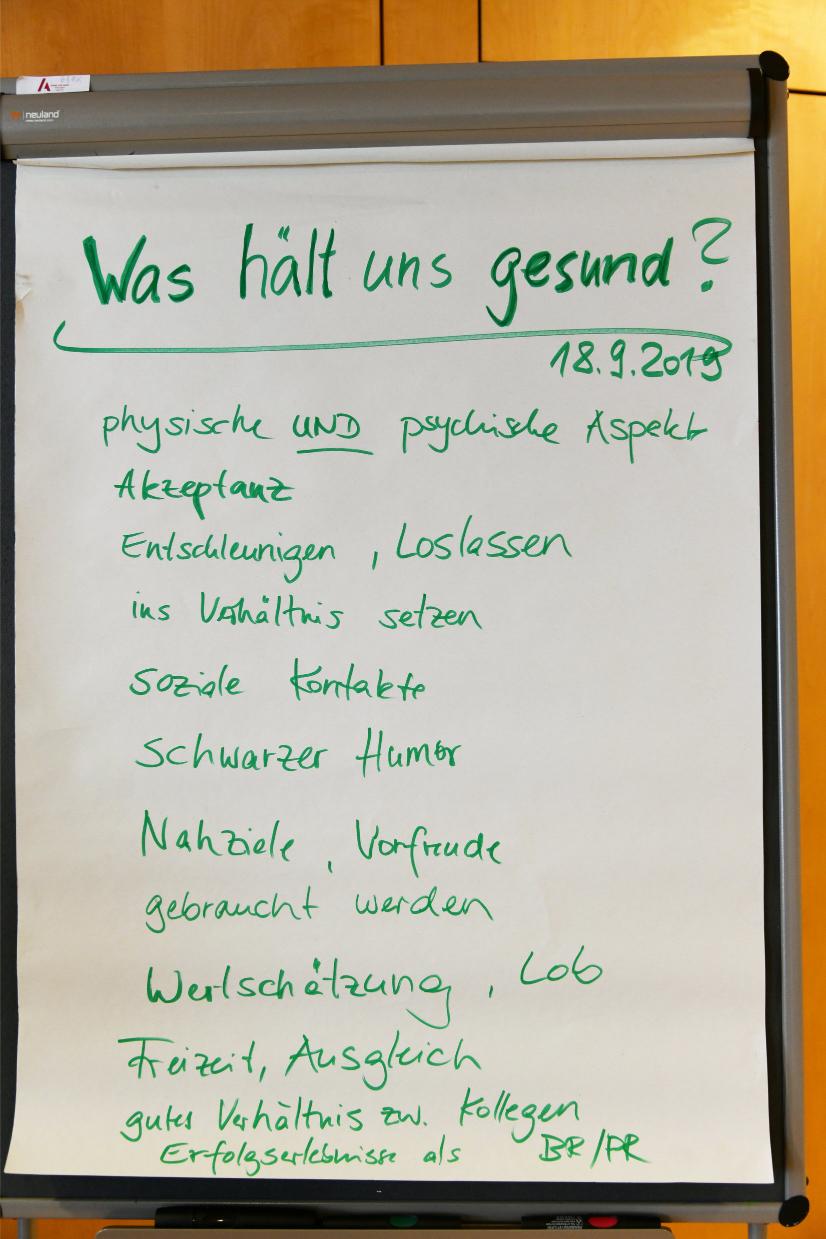 neuland
Was hält uns gesund?
18.9.2019
physische UND psychische Aspekte
Akzeptanz
Entschleunigen, Loslassen
ins Verhältnis setzen
soziale Kontakte
Schwarzer Humor
Nahziele, Vorfreude
gebraucht werden
Wertschätzung, Lob
Freizeit, Ausgleich
gutes Verhältnis zw. Kollegen
Erfolgserlebnisse als BR/PR